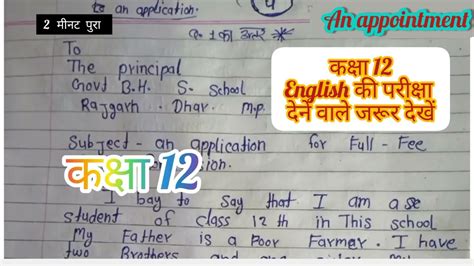 to an application.
An appointment
2 मीनट पुरा
4
Q. 1 का उत्तर
To
The principal
Govt B.H. S. School
Rajgarh Dhar. m.p.
कक्षा 12
English की परीक्षा
देने वाले जरूर देखें
Subject - an application for Full - Fee
कक्षा 12
I bay to Say that I am a se
student of class 12 th in This school
My Father is a Poor Farmer. I have
two Brothers and